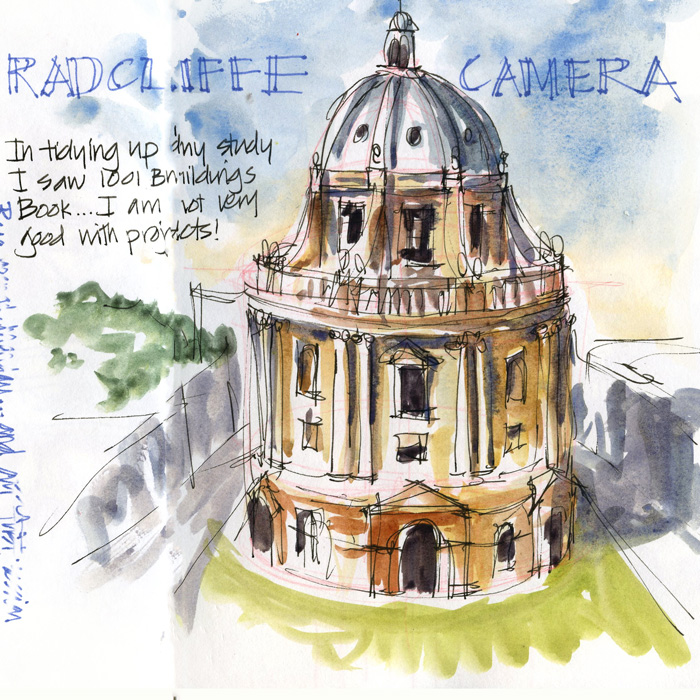 RADCLIFFE CAMERA
In tidying up my study
I saw 1001 Buildings
Book...I am not very
good with projects!